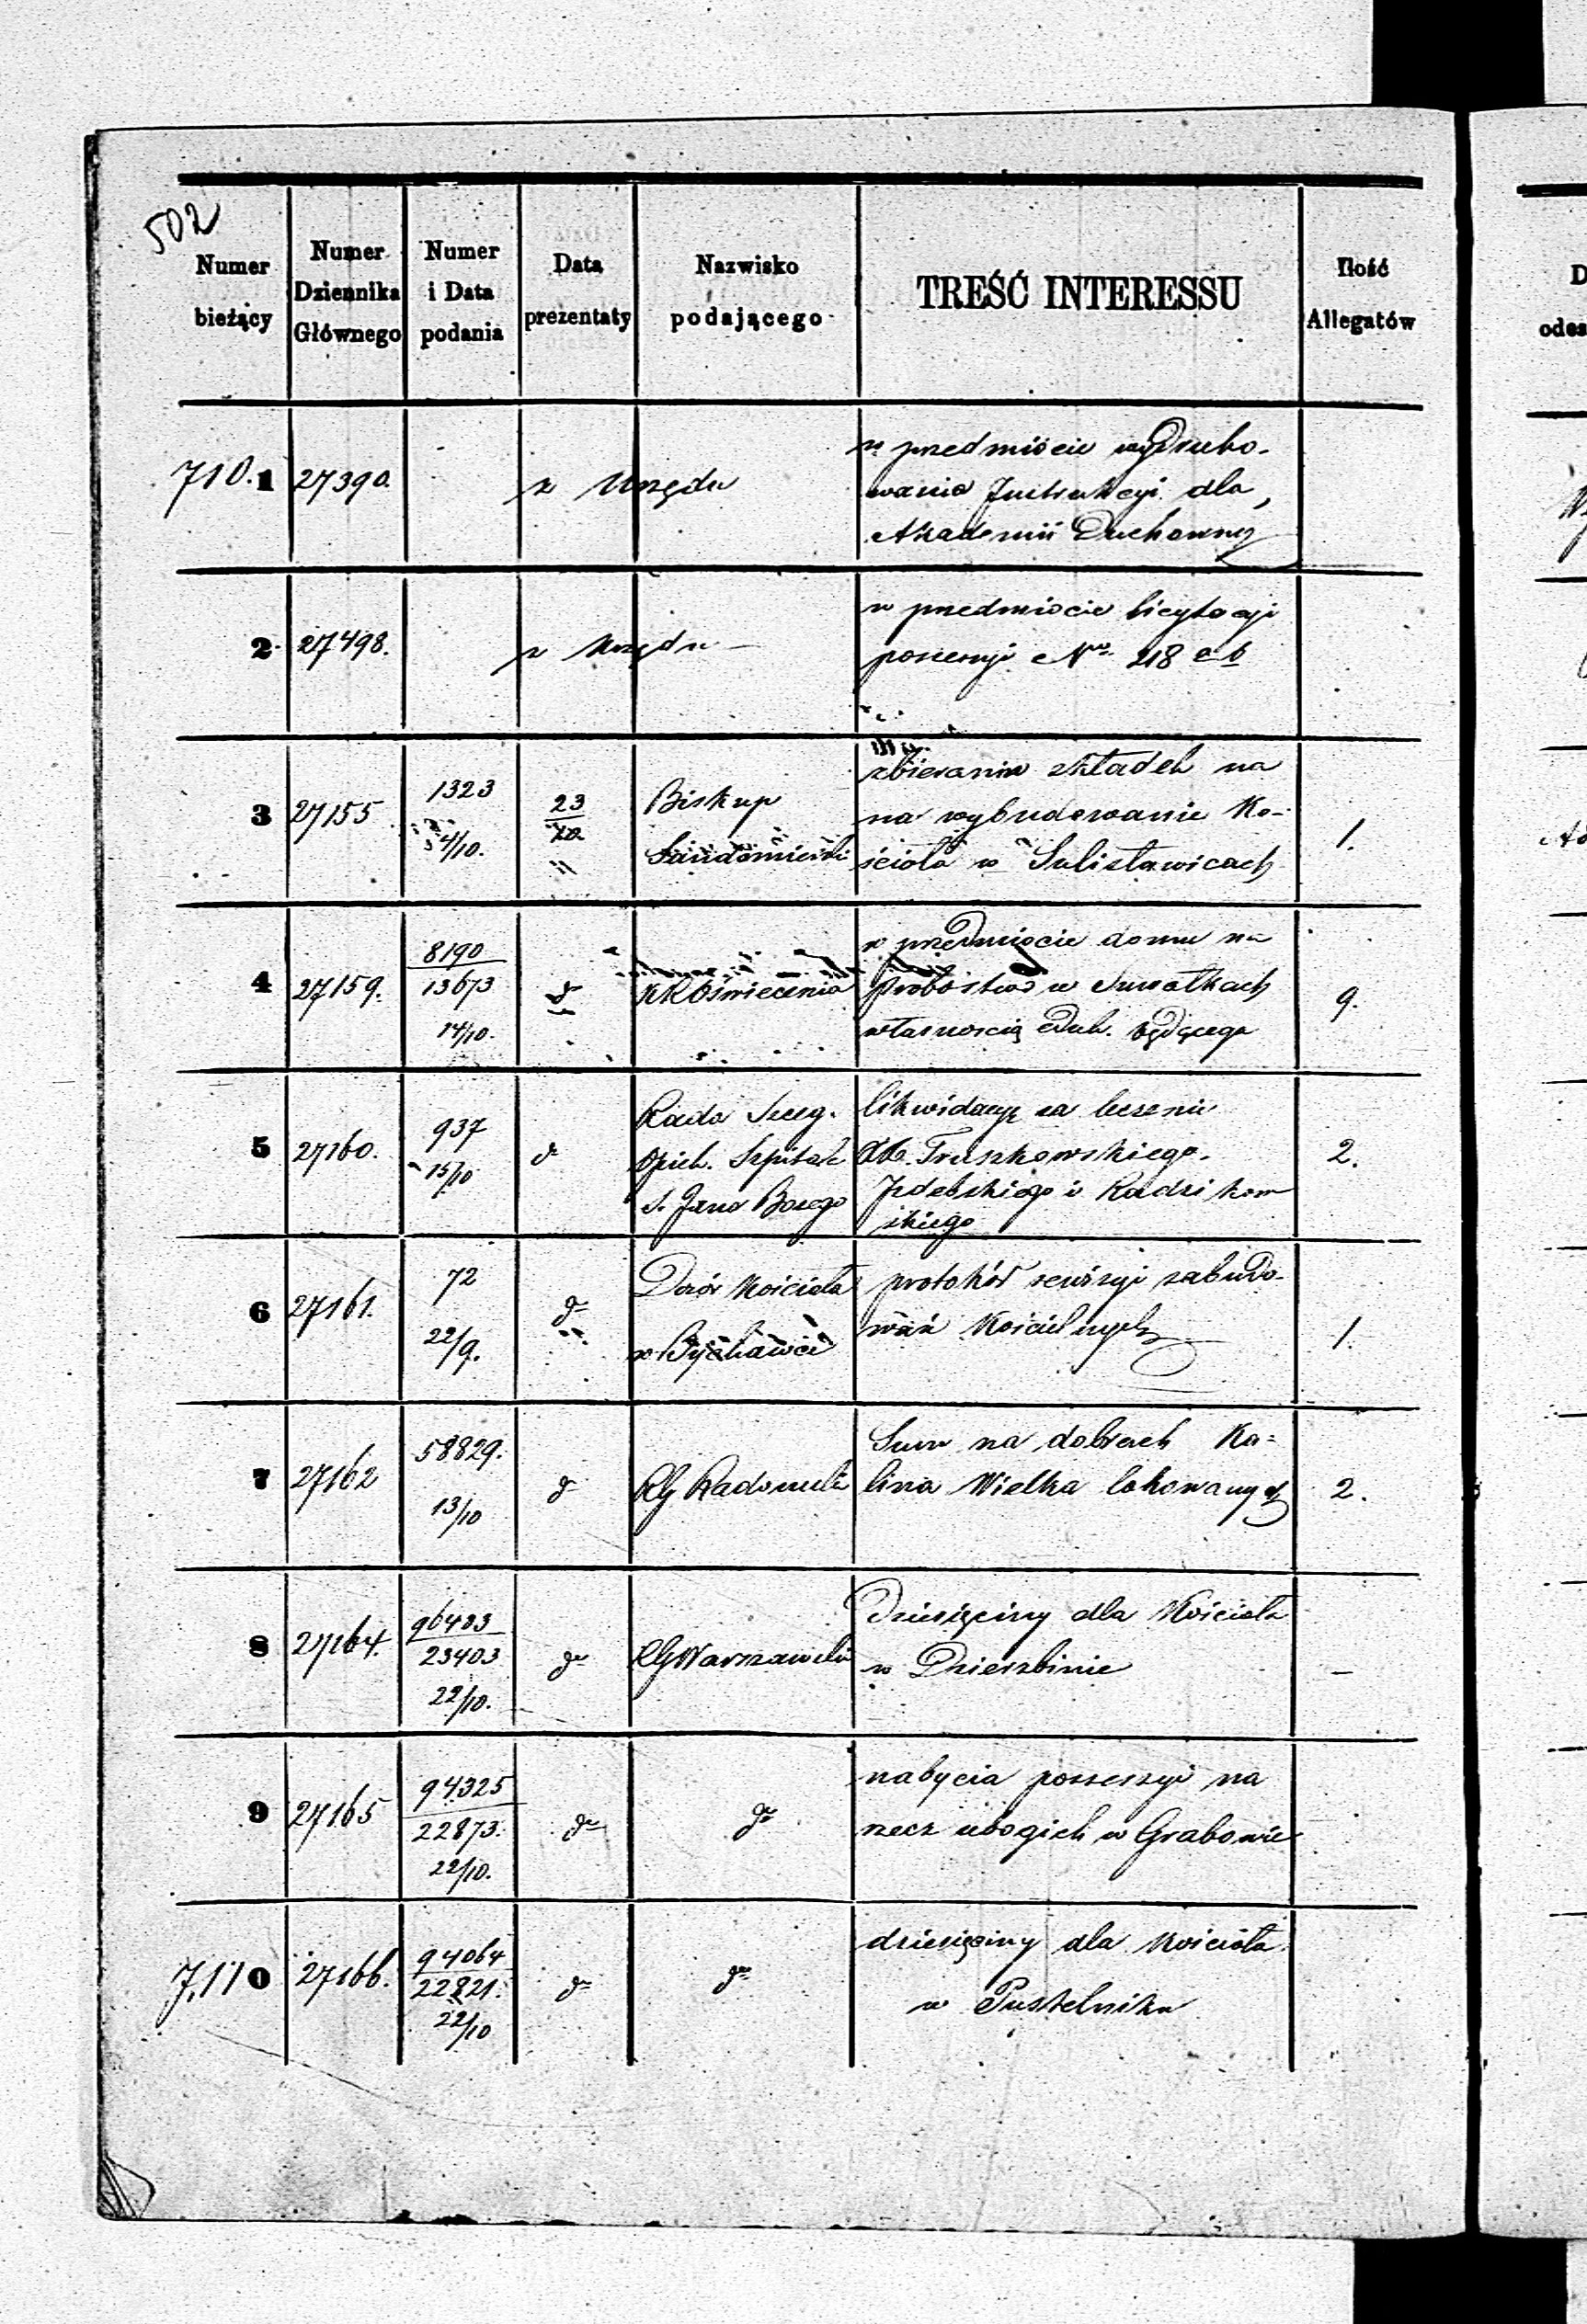 502
Numer bieżący
Numer Dziennika Głównego
Numer i Data podania
Data prezentaty
Nazwisko podającego
TREŚĆ INTERESSU
Ilość Allegatów
D
odes
710.1 27390. z Urzędu
w przedmiocie wydruko-
wania Instrukcyi dla
Akademii Duchownej
2 27498. z Urzędu
w przedmiocie licytacyi
possessyi No 218 a b
3 27155 1323 4/10. 23/10 Biskup Sandomierski
zbierania składek na
na wybudowanie Ko-
ścioła w Sulisławicach
1.
4 27159. 8190 13673 14/10. do KROświecenia
w przedmiocie domu na
probostwo w Suwałkach
własnością Duch. będącego
9.
5 27160. 937 15/10 do
Rada Szczeg.
Opiek. Szpitala
S. Jana Bożego
likwidacye za leczenie
XX. Truszkowskiego.
Izdebskiego i Radzikow
skiego
2.
6 27161. 72 22/9. do
Dozór Kościoła
w Bychawce
protokół rewizyi zabudo-
wań Kościelnych
1.
7 27162 58829. 13/10 do RG Radomski
Sum na dobrach Ka-
lina Wielka lokowanych
2.
8 27164. 96483 23403 22/10. do RG Warszawski
Dziesięciny dla Kościoła
w Dzierzbinie
–
9 27165 94325 22873. 22/10. do do
nabycia possessyi na
rzecz ubogich w Grabowie
7,110 27166. 94064 22821. 22/10 do do
dziesięciny dla Kościoła
w Pustelniku